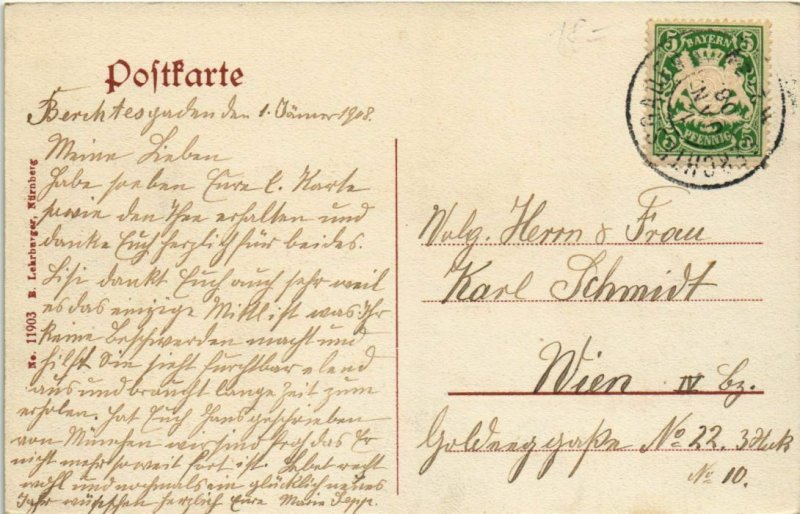 Postkarte
Berchtesgaden den 1. Jänner 1908.
Meine Lieben
habe soeben Eure l. Karte
sowie den Thee erhalten und
danke Euch herzlich für beides.
Lisi dankt Euch auch sehr weil
es das einzige Mittl ist was Ihr
keine Beschwerden macht und
hilft Sie sieht furchtbar elend
aus und braucht lange Zeit zum
erholen. Hat Euch Hans geschrieben
von München wir sind froh das Er
nicht mehr so weit fort ist. Lebet recht
wohl und nochmals ein glücklich neues
Jahr wünschen herzlich Eure Marie
No. 11903 B. Lehrburger, Nürnberg
5 BAYERN 5
5 PFENNIG 5
Wolg. Herrn & Frau
Karl Schmidt
Wien IV Bz.
Goldegggaße No 22. 3 Stck
No 10.